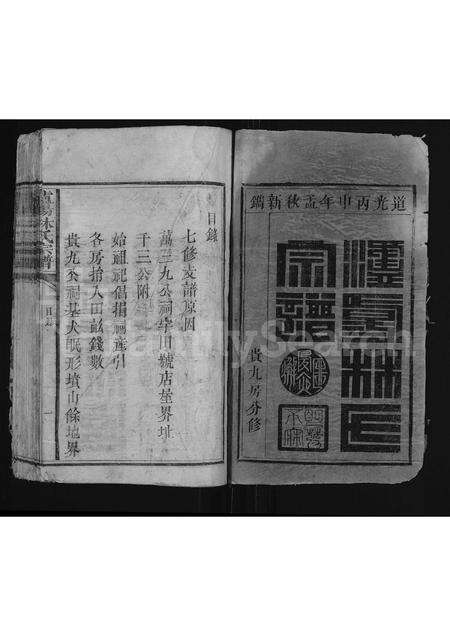 道光丙申年孟秋新鐫
林氏
宗譜
貴九房分修
目錄
七修支譜原因
萬三九公祠宇田號店屋界址
千三公附
始祖祀倡捐祠產引
各房捐入田畝錢數
貴九公祠基火眠形墳山餘地界
林氏宗譜
目錄
一
FamilySearch